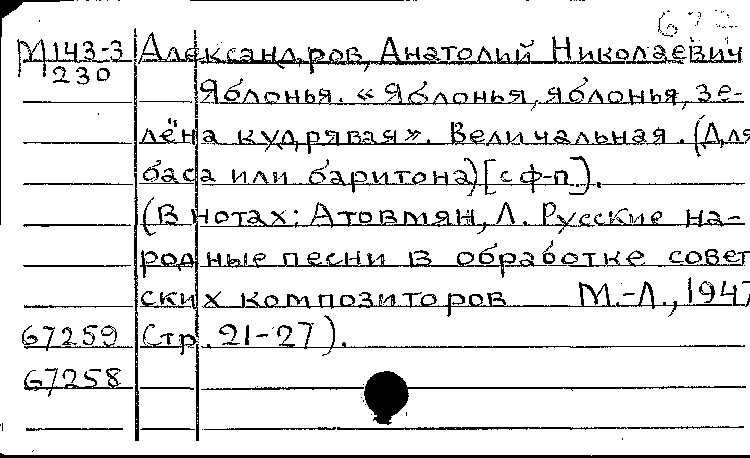 672
М143-3 Александров, Анатолий Николаевич
230
Яблонья. «Яблонья, яблонья, зе-
лёна кудрявая». Величальная. (Для
баса или баритона) [с ф-п].
(В нотах: Атовмян, Л. Русские на-
родные песни в обработке совет
ских композиторов М.-Л., 1947
67259 Стр. 21-27).
67258